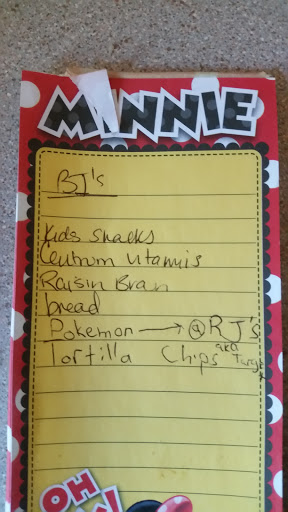 MINNIE
BJ's
Kids snacks
Centrum vitamis
Raisin Bran
bread
Pokemon → @ RJ's
Tortilla Chips aka Target
OH